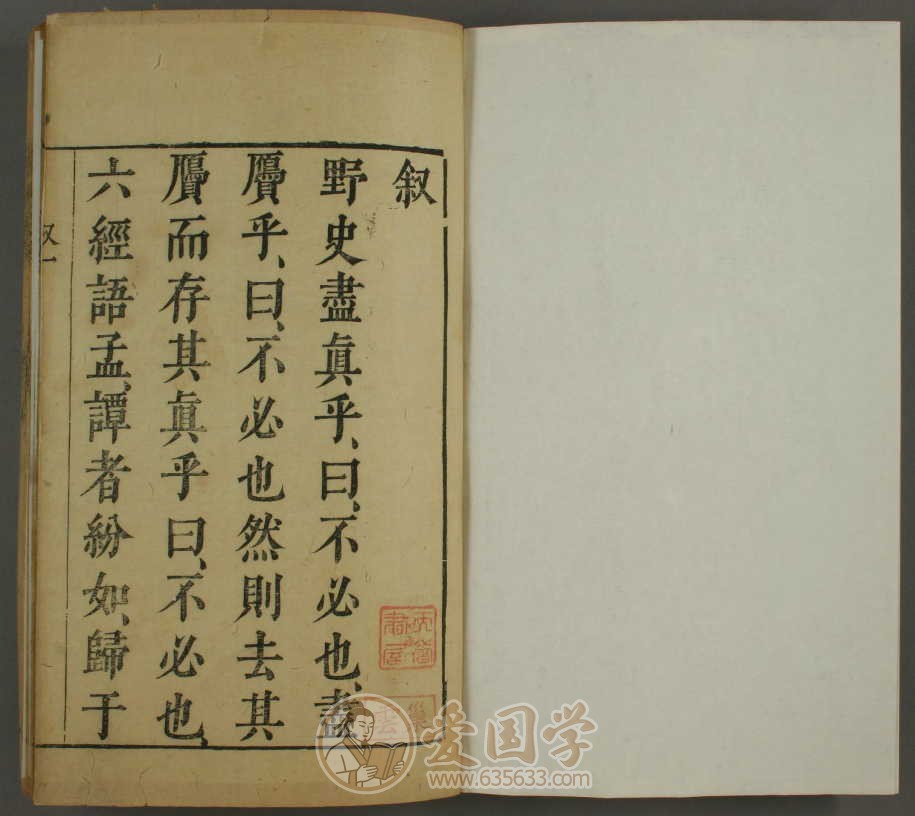 叙
野史盡眞乎、曰、不必也、盡
贋乎、曰、不必也然則去其
贋而存其眞乎曰、不必也、
六經語孟、譚者紛如、歸于
叙一
爱国学
www.635633.com